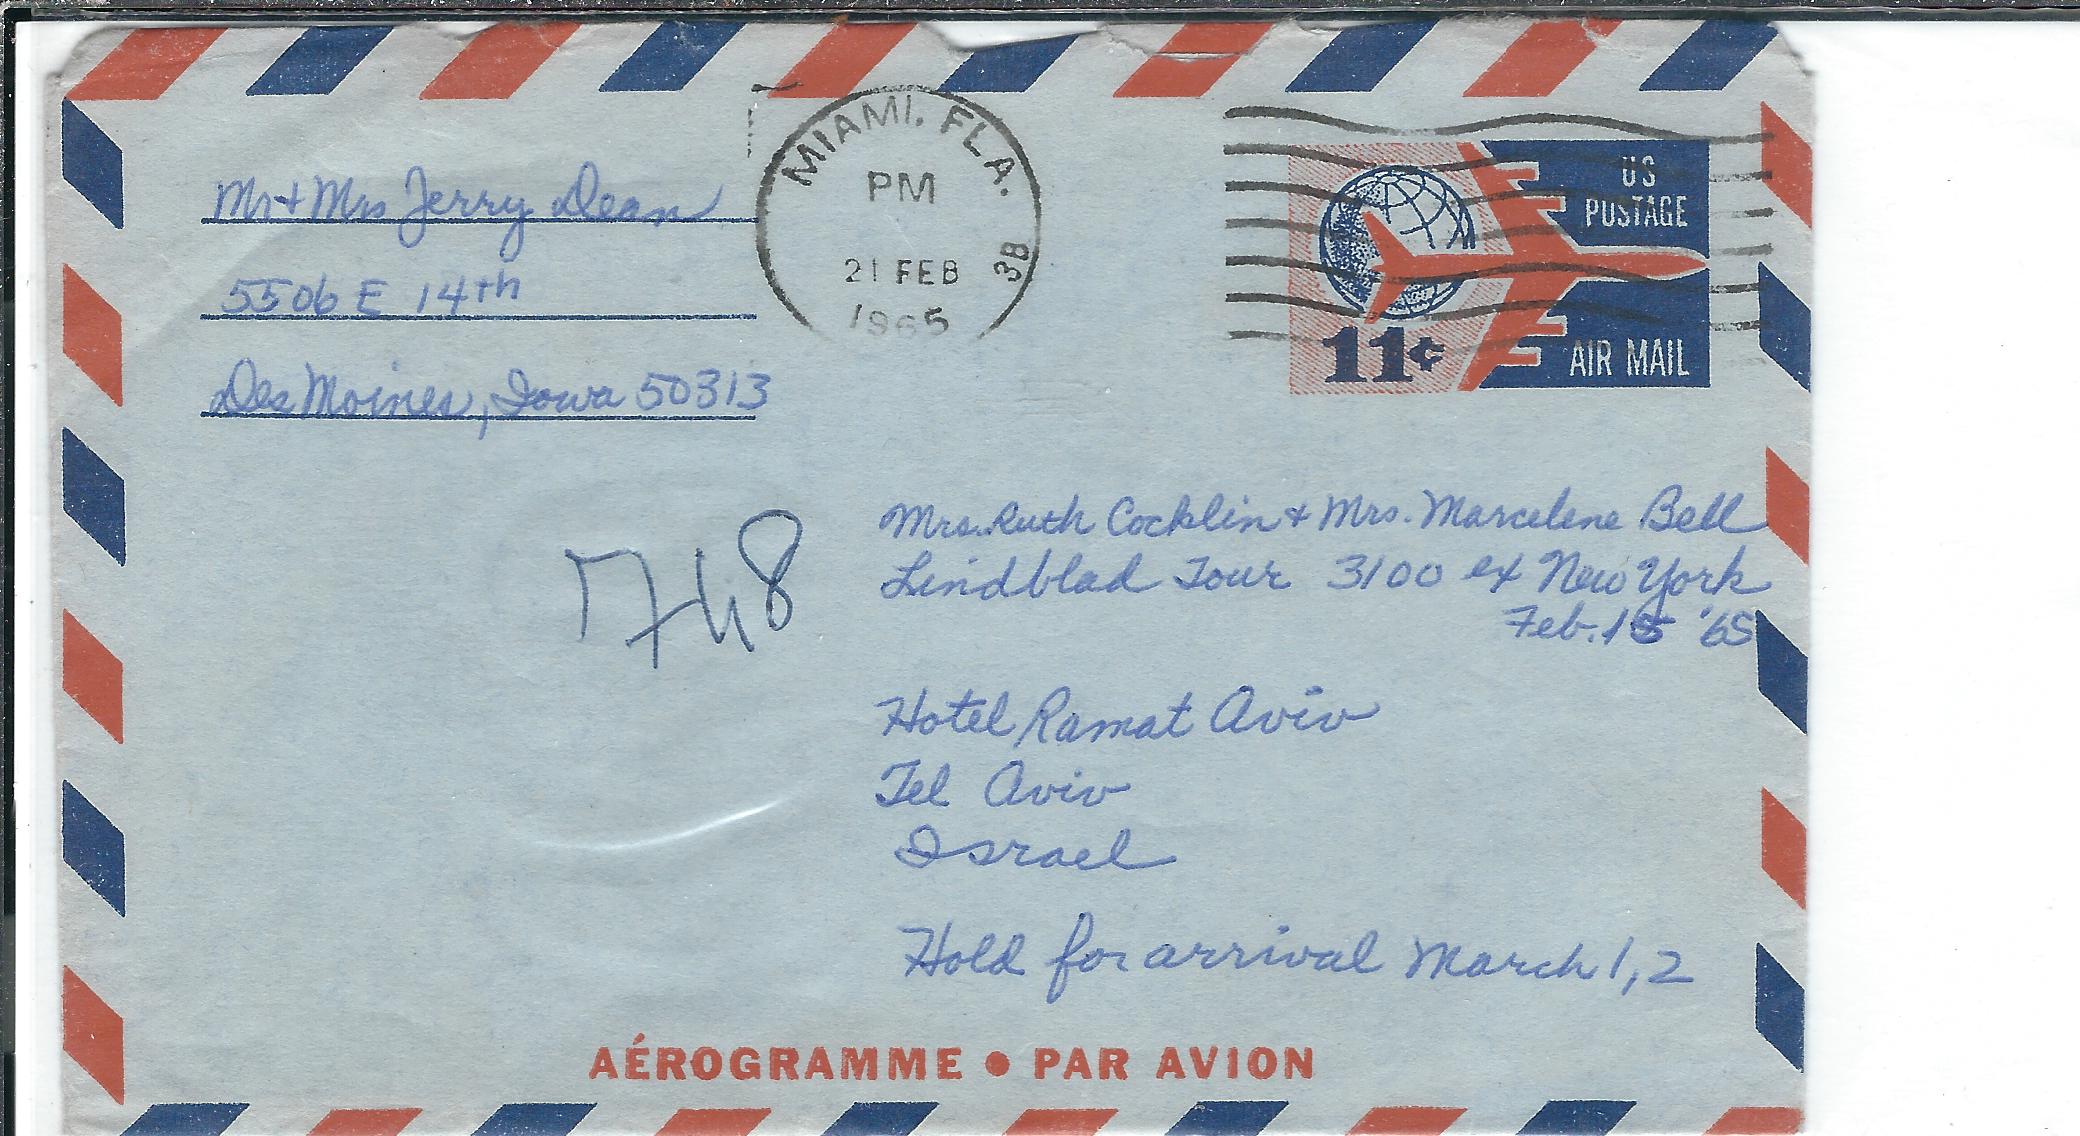 Mr + Mrs Jerry Dean
5506 E 14th
Des Moines, Iowa 50313
MIAMI, FLA.
PM
21 FEB
1965
3B
US
POSTAGE
11¢
AIR MAIL
748
Mrs. Ruth Cocklin + Mrs. Marcelene Bell
Lindblad Tour 3100 ex New York
Feb. 15 '65
Hotel Ramat Aviv
Tel Aviv
Israel
Hold for arrival March 1, 2
AÉROGRAMME • PAR AVION